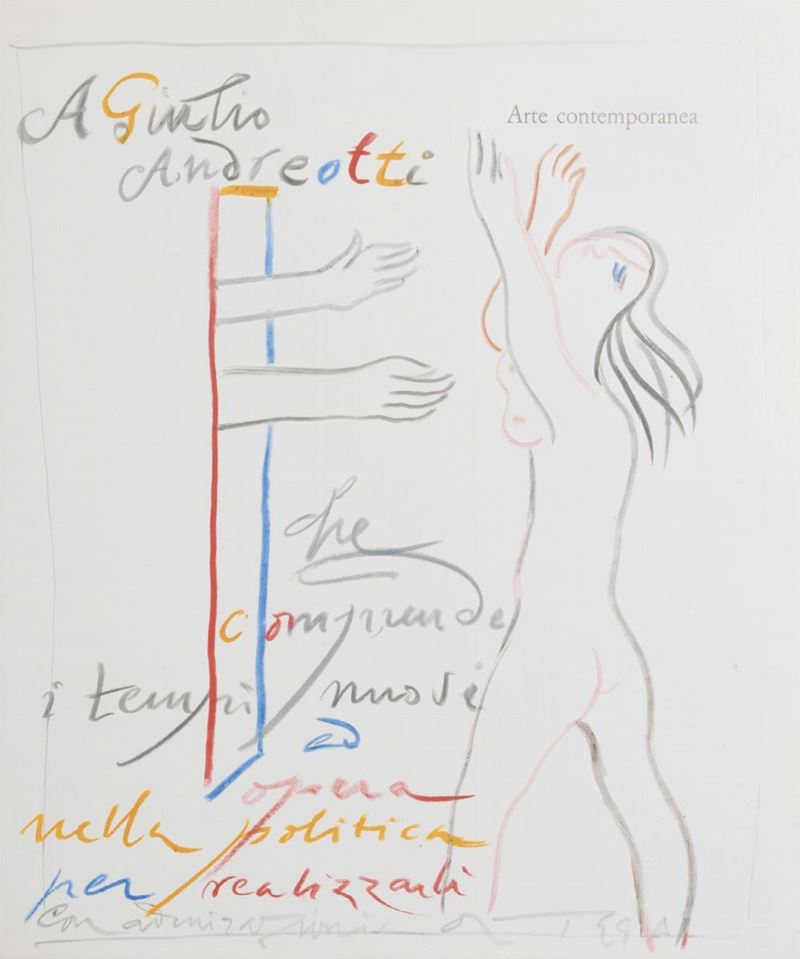 A Giulio
Arte contemporanea
Andreotti
che
comprende
i tempi nuovi
ed
opera
nella politica
per realizzarli
Con ammirazione